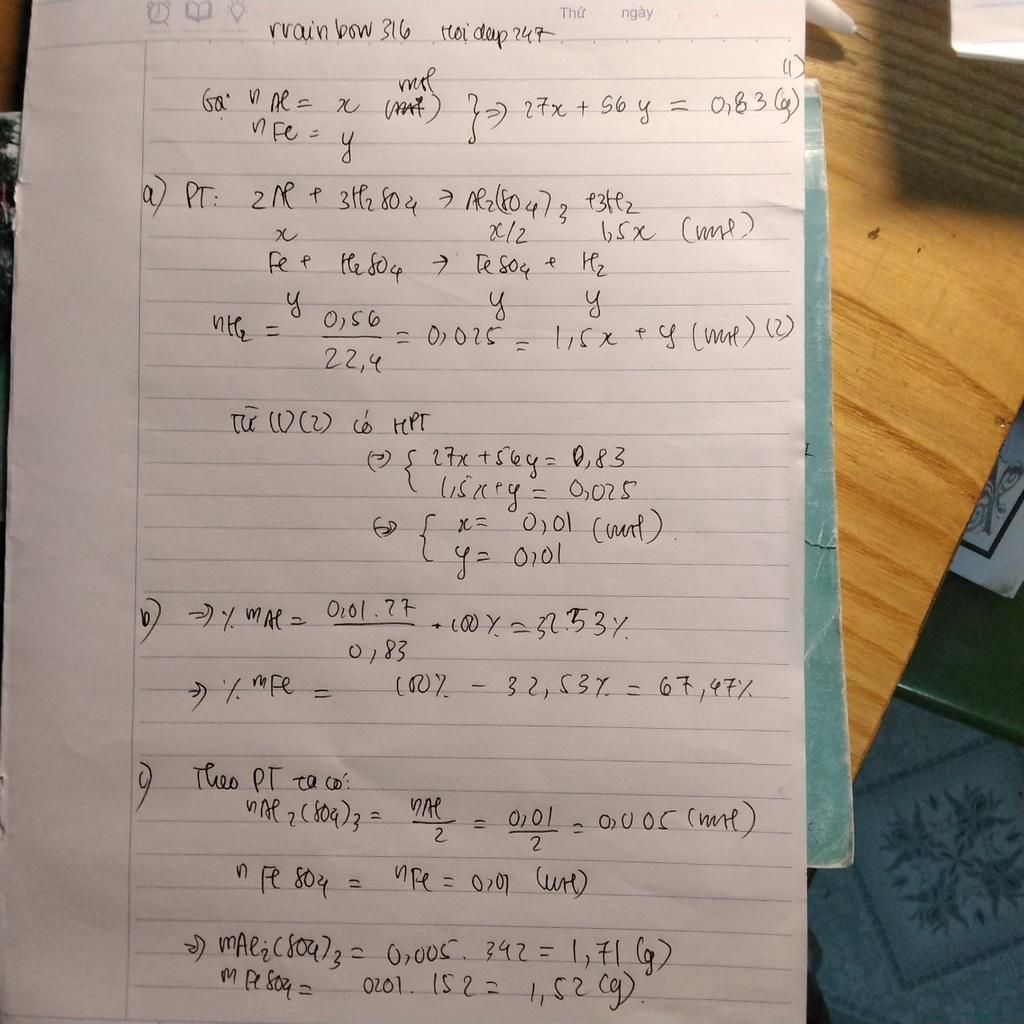 Thứ ngày
rvainbow316 Hoidap247
(1)
Gọi nAl = x (mol) } => 27x + 56y = 0,83 (g)
nFe = y
a) PT: 2Al + 3H2SO4 → Al2(SO4)3 + 3H2
x x/2 1,5x (mol)
Fe + H2SO4 → FeSO4 + H2
y y y
nH2 = 0,56/22,4 = 0,025 = 1,5x + y (mol) (2)
Từ (1)(2) có HPT
<=> { 27x + 56y = 0,83
1,5x + y = 0,025
<=> { x = 0,01 (mol).
y = 0,01
b) => % mAl = 0,01.27/0,83 . 100% = 32.53%
=> % mFe = 100% - 32,53% = 67,47%
c) Theo PT ta có:
nAl2(SO4)3 = nAl/2 = 0,01/2 = 0,005 (mol)
nFeSO4 = nFe = 0,01 (mol)
=> mAl2(SO4)3 = 0,005. 342 = 1,71 (g)
mFeSO4 = 0,01. 152 = 1,52 (g).